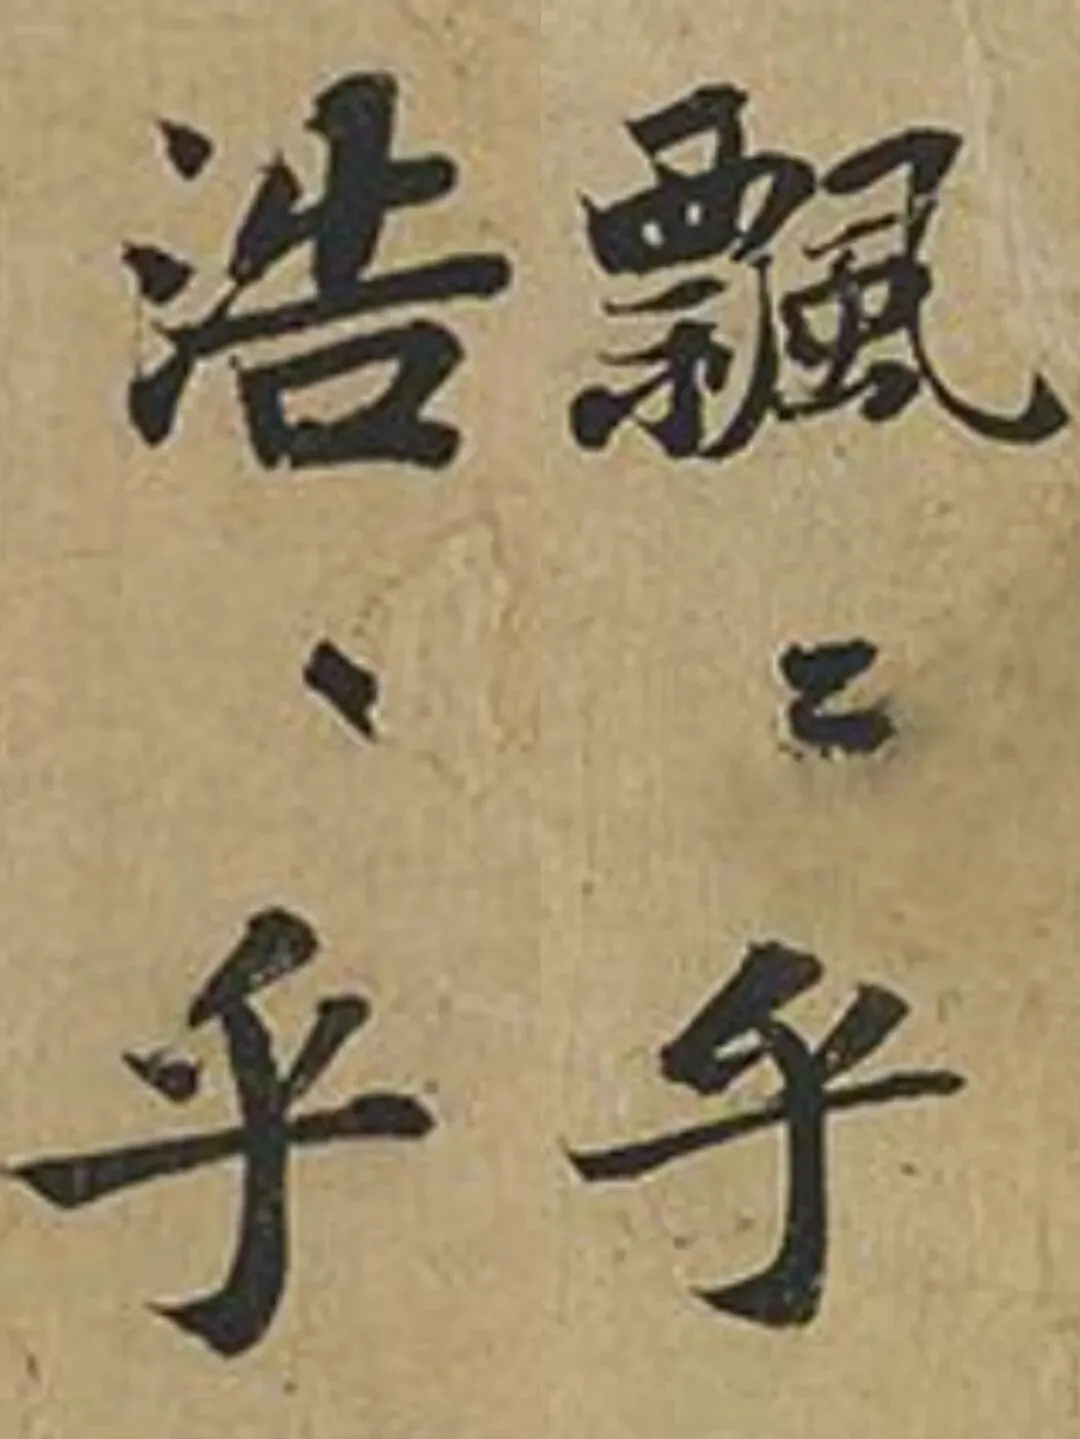 浩〻乎
飄〻乎